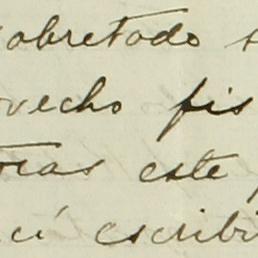 sobretodo s
ovecho fis
toras este
cí escribi